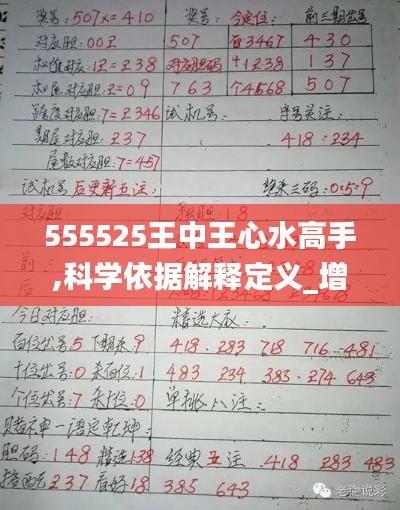 奖号:507x=410 奖号: 今定位: 前三期奖号
对应胆:00 507 百3467 430
对应胆:12=238 对应胆码 十1238 137
对应胆:2=09 763 个4568 507
跨度对应胆:7=2346 试机号: 字号关注:
期尾对应胆:237 418:234
尾数对应胆:7=457
试机号后更新五注: 绝杀三码:0:5:9
对应胆: 胆:18
555525王中王心水高手
,科学依据解释定义_增
今日对应胆: 精选大底:
百位出号5下期杀9 418.283 718 716.481
十位出号:0杀百位:1 483 234 383.274 643
个位出号:7杀十位:0 单挑八注:
赌神一语定乾坤:
胆码:148精选138 经典五注.418 283 483
237看好18 385 643
老谈说彩